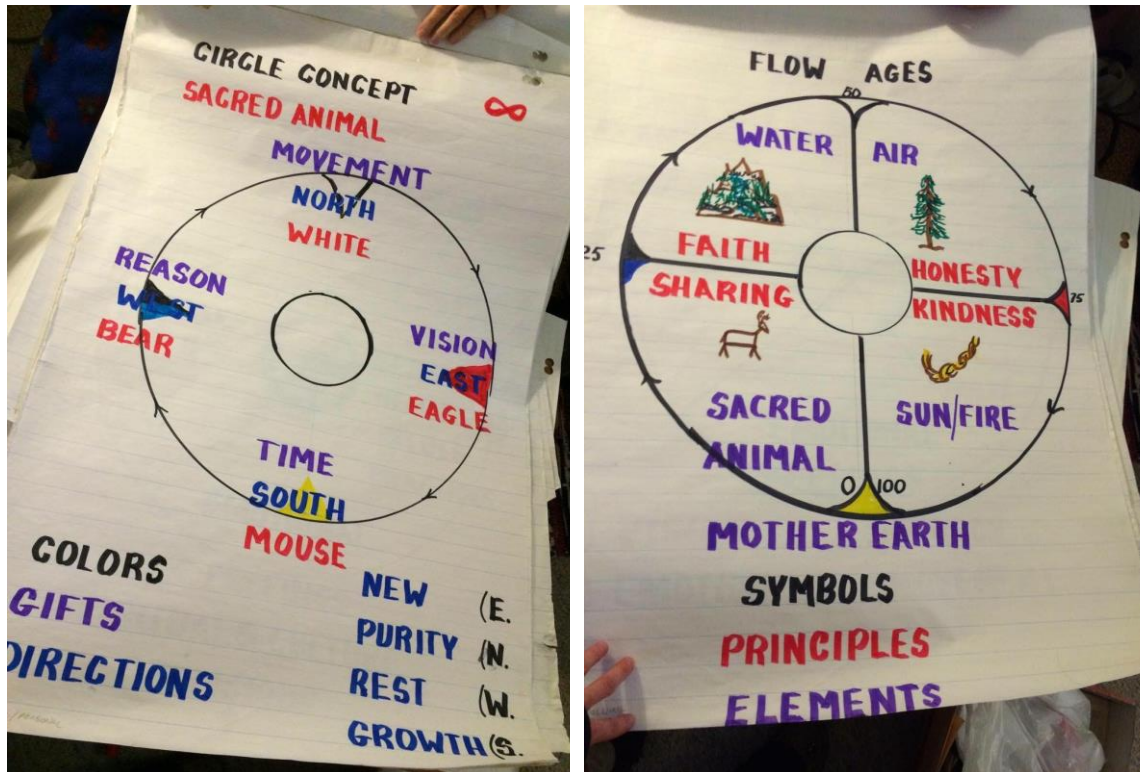 CIRCLE CONCEPT
SACRED ANIMAL
MOVEMENT
NORTH
WHITE
REASON
WEST
BEAR
VISION
EAST
EAGLE
TIME
SOUTH
MOUSE
COLORS
GIFTS
DIRECTIONS
NEW (E.
PURITY (N.
REST (W.
GROWTH (S.
FLOW AGES
50
WATER AIR
25
FAITH HONESTY
SHARING KINDNESS
75
SACRED SUN/FIRE
ANIMAL
0 100
MOTHER EARTH
SYMBOLS
PRINCIPLES
ELEMENTS